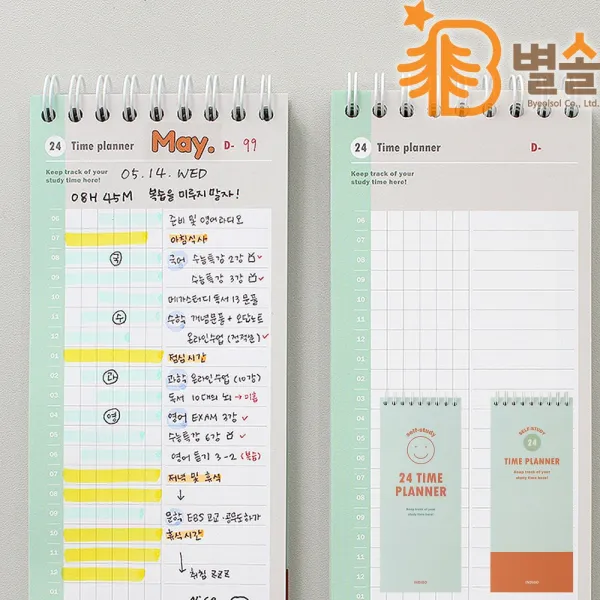 별솔
Byeolsol Co., Ltd.
24 Time planner May. D- 99
Keep track of your
study time here!
05.14. WED
08H 45M 복습을 미루지 말자!
06 준비 및 영어라디오
07 아침식사
08 국 국어 수능특강 2강
09 수능특강 3강
10 메가스터디 독서 13문풀
11 수 수학 개념문풀 + 오답노트
12 온라인수업 (전적분)
01 점심시간
02 과 과학 온라인수업 (10강)
03 독서 10대의 뇌 → 미흡
04 영 영어 EXAM 3강
05 수능특강 6강
06 영어 듣기 3-2 (복습)
07 저녁 및 휴식
08
09 문학 EBS
10 휴식시간
11
12 취침 ZZZ
24 Time planner D-
Keep track of your
study time here!
06
07
08
09
10
11
12
01
02
03
04
05
06
07
08
09
10
11
12
self-study
24 TIME
PLANNER
Keep track of your
study time here!
SELF-STUDY
24
TIME PLANNER
Keep track of your
study time here!